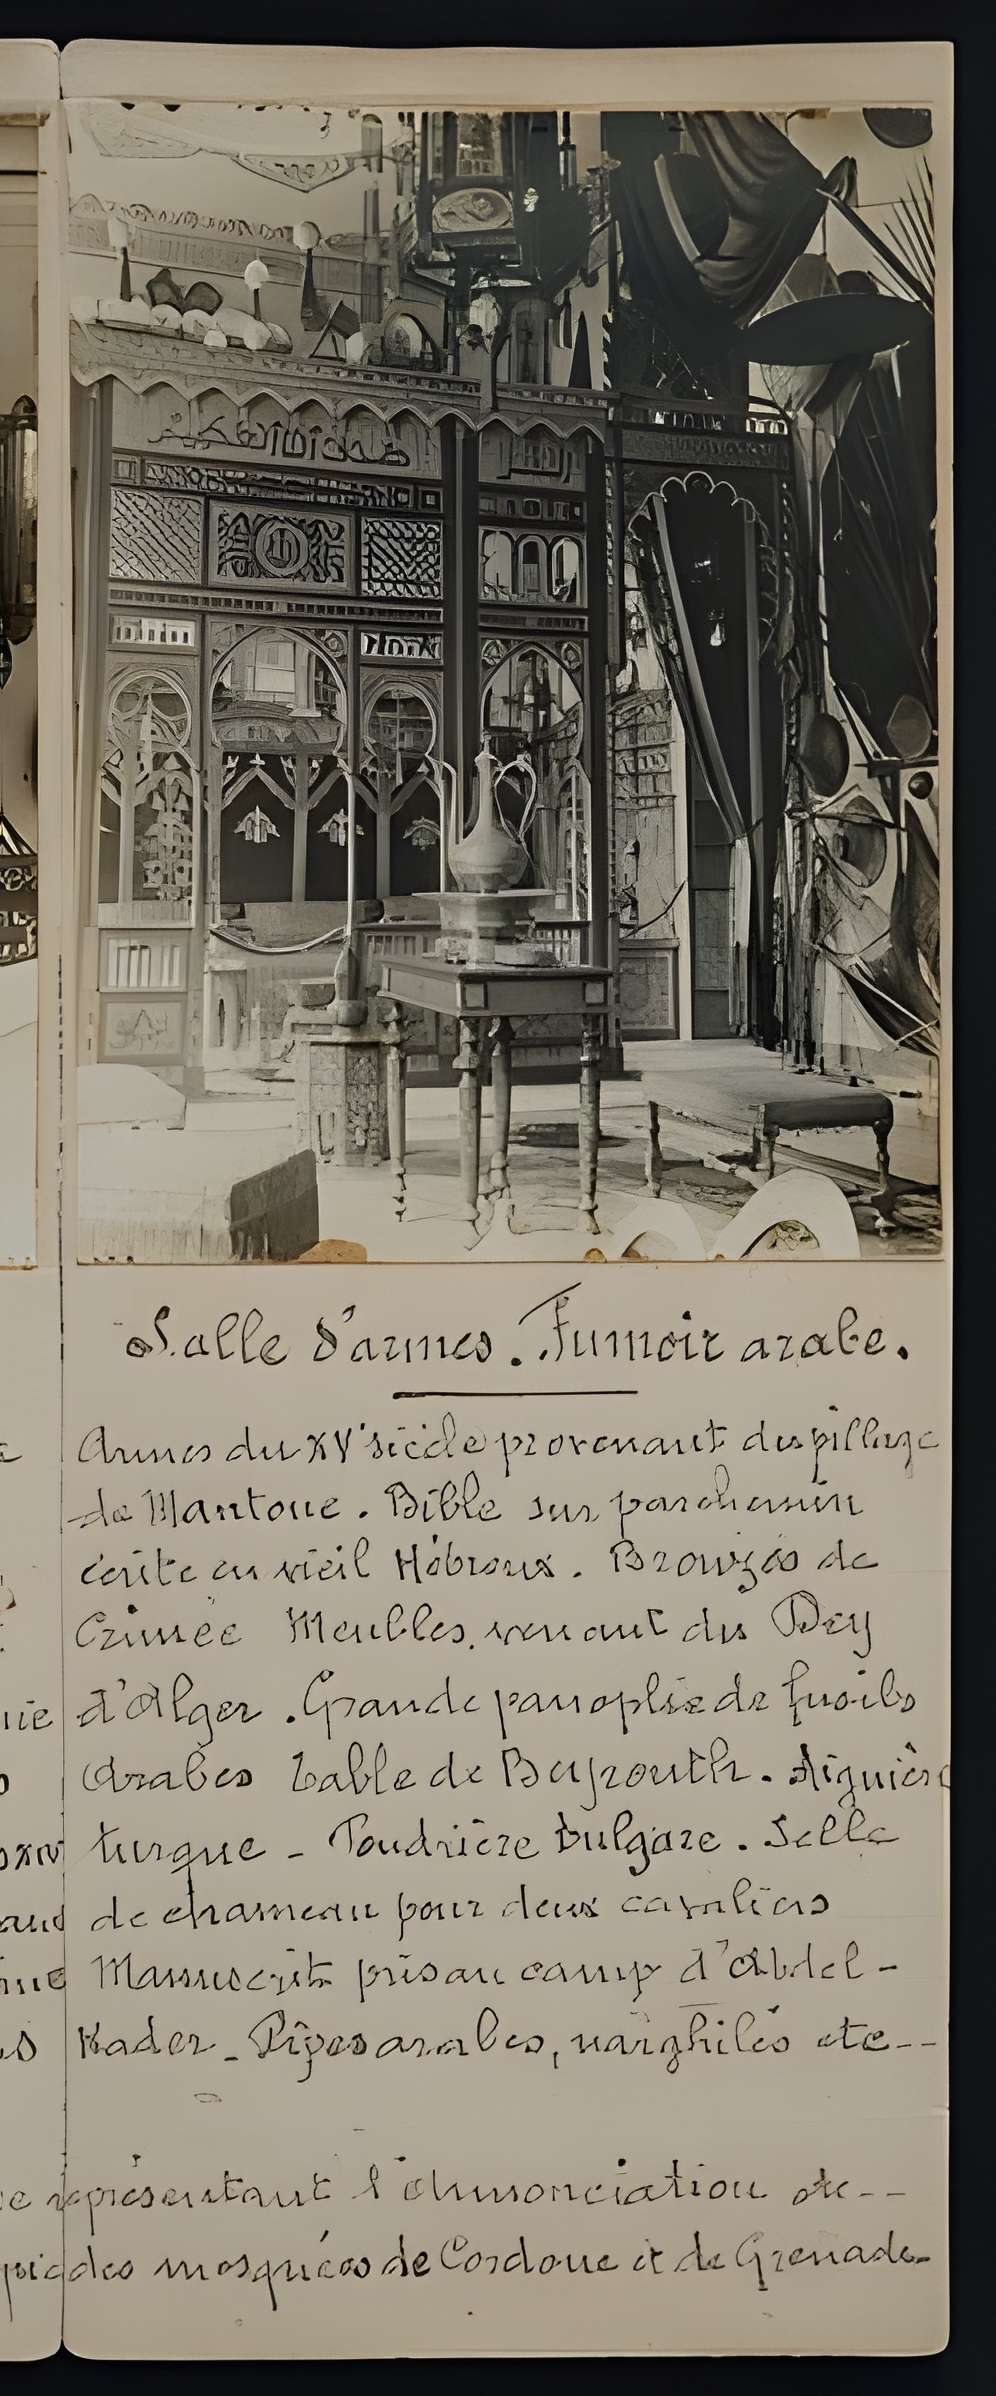 Salle d'armes. Fumoir arabe.
Armes du XVe siècle provenant du pillage
de Mantoue. Bible sur parchemin
écrite en vieil Hébreux. Bronzes de
Crimée Meubles venant du Dey
d'Alger. Grande panoplie de fusils
Arabes Table de Beyrouth. Aiguière
turque - Poudrière bulgare. Selle
de chameau pour deux cavaliers
Manuscrit pris au camp d'Abdel-
Kader - Pipes arabes, narghilés etc--
représentant l'Annonciation etc--
des mosquées de Cordoue et de Grenade-